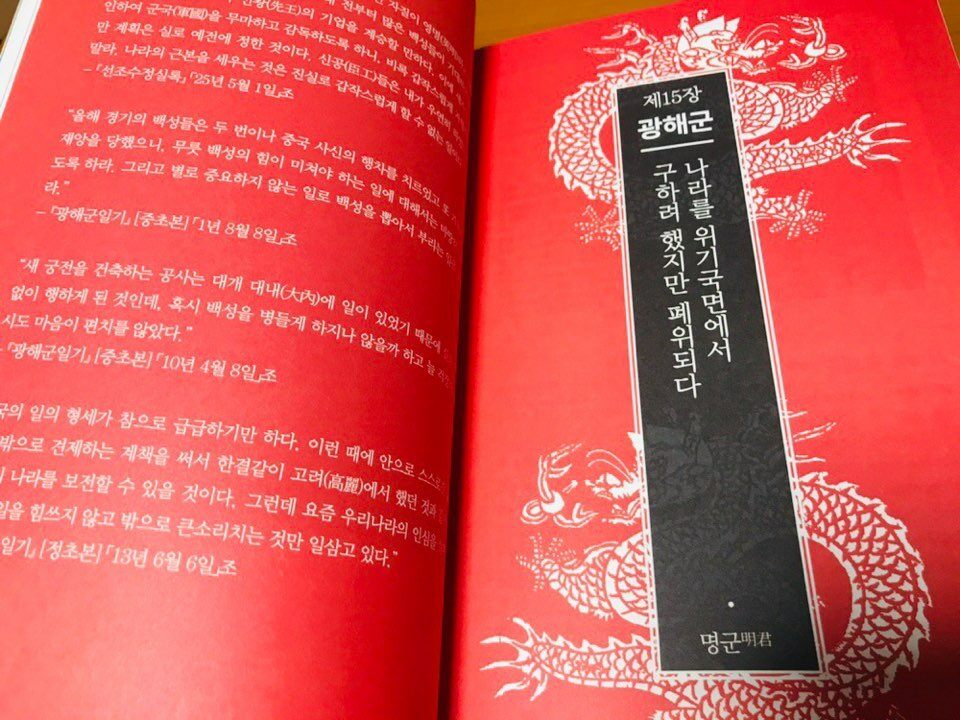 자질이 영명
전부터 많은 백성들이
선왕(先王)의 기업을 계승할 만하다. 이에
인하여 군국(軍國)을 무마하고 감독하도록 하니, 비록 갑작스럽게
만 계획은 실로 예전에 정한 것이다. 신공(臣工)들은 내가 우연히
말라. 나라의 근본을 세우는 것은 진실로 갑작스럽게 할 수 없는
– 『선조수정실록』 「25년 5월 1일」조
“올해 경기의 백성들은 두 번이나 중국 사신의 행차를 치르었고 또
재앙을 당했으니, 무릇 백성의 힘이 미쳐야 하는 일에 대해서는
도록 하라. 그리고 별로 중요하지 않는 일로 백성을 뽑아서 부리는
라.”
– 『광해군일기』 [중초본] 「1년 8월 8일」조
“새 궁전을 건축하는 공사는 대개 대내(大內)에 일이 있었기 때문에
없이 행하게 된 것인데, 혹시 백성을 병들게 하지나 않을까 하고 늘
시도 마음이 편치를 않았다.”
– 『광해군일기』 [중초본] 「10년 4월 8일」조
국의 일의 형세가 참으로 급급하기만 하다. 이런 때에 안으로 스스로
밖으로 견제하는 계책을 써서 한결같이 고려(高麗)에서 했던 것과
나라를 보전할 수 있을 것이다. 그런데 요즘 우리나라의 인심을
일을 힘쓰지 않고 밖으로 큰소리치는 것만 일삼고 있다.”
일기』 [정초본] 「13년 6월 6일」조
제15장
광해군
나라를 위기국면에서
구하려 했지만 폐위되다
명군明君